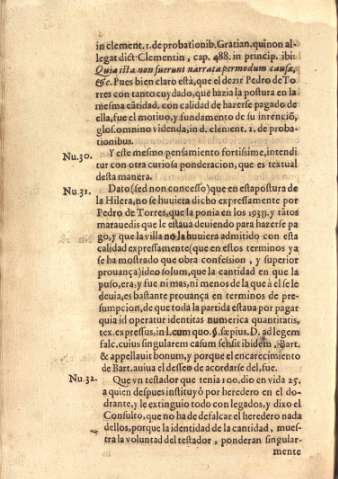 in clement. 1. de probationib. Gratian. qui non al-
legat dict Clementin, cap. 488. in princip. ibi:
Quia ista non fuerunt narrata per modum causæ,
&c. Pues bien claro està, que el dezir Pedro de To-
rres con tanto cuydado, que hazia la postura en la
mesma cãtidad, con calidad de hazerse pagado de
ella, fue el motiuo, y fundamento de su intencio,
glos. omnino videnda, in d. clement. 2. de proba-
tionibus.
Nu. 30. Y este mesmo pensamiento fortissime, intendi
tur con otra curiosa ponderacion, que es textual
desta manera.
Nu. 31. Dato (sed non concesso) que en esta postura de
la Hilera, no se huuiera dicho expressamente por
Pedro de Torres, que la ponia en los 193y, y tãtos
marauedis que le estaua deuiendo para hazerse pa
go, y que la villa no la huuiera admitido con esta
calidad expressamente (que en estos terminos ya
se ha mostrado que obra confession, y superior
prouança) ideo solum, que la cantidad en que la
puso, era, y fue ni mas, ni menos de la que à el se le
deuia, es bastante prouança en terminos de pre-
sumpcion, de que toda la partida estaua por pagar
quia id operatur identitas numerica quantitatis,
tex. expressus, in l. cum quo. §. sæpius. D. ad legem
falc. cuius singularem casum sensit ibidem, Bart.
& appellauit bonum, y porque el encarecimiento
de Bart. auiua el desseo de acordarse del, fue.
Nu. 32. Que vn testador que tenia 100. dio en vida 25.
a quien despues instituyò por heredero en el do-
drante, y le extinguio todo con legados, y dixo el
Consulto, que no ha de desfalcar el heredero nada
dellos, porque la identidad de la cantidad, mues-
tra la voluntad del testador, ponderan singular-
mente